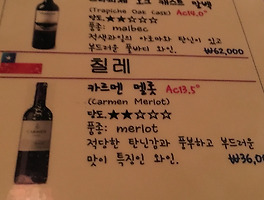 (Trapiche Oak Cask) Ac14.0°
당도.★★☆☆☆
품종: malbec
적색과일의 아로마와 탄닌이 있고
부드러운 풀바디 와인. ₩62,000
칠레
카르멘 멜롯 Ac13.5°
(Carmen Merlot)
당도.★★☆☆☆
품종: merlot
적당한 탄닌감과 풍부하고 부드러운
맛이 특징인 와인. ₩36,0